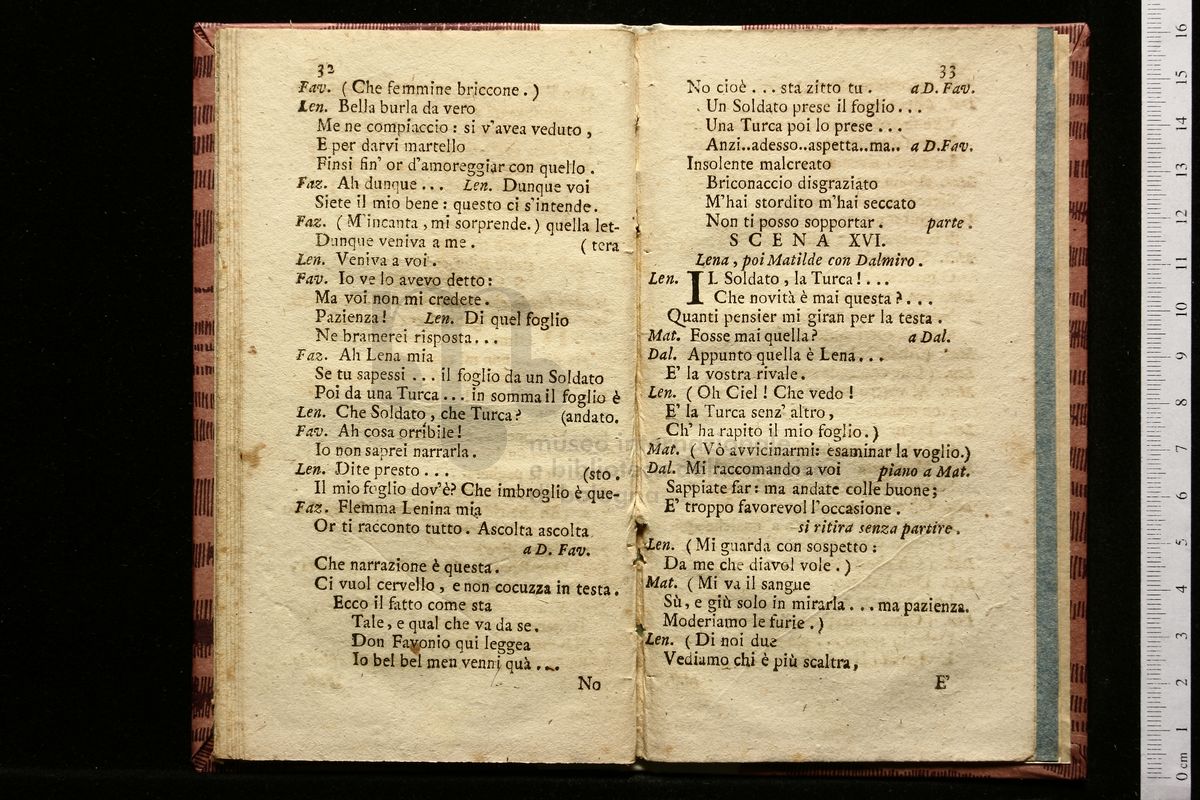 32
Fav. (Che femmine briccone.)
Len. Bella burla da vero
Me ne compiaccio: si v'avea veduto,
E per darvi martello
Finsi fin' or d'amoreggiar con quello.
Faz. Ah dunque... Len. Dunque voi
Siete il mio bene: questo ci s'intende.
Faz. (M'incanta, mi sorprende.) quella let-
Dunque veniva a me. (tera
Len. Veniva a voi.
Fav. Io ve lo avevo detto:
Ma voi non mi credete.
Pazienza! Len. Di quel foglio
Ne bramerei risposta...
Faz. Ah Lena mia
Se tu sapessi... il foglio da un Soldato
Poi da una Turca... in somma il foglio è
Len. Che Soldato, che Turca? (andato.
Fav. Ah cosa orribile!
Io non saprei narrarla.
Len. Dite presto... (sto.
Il mio foglio dov'è? Che imbroglio è que-
Faz. Flemma Lenina mia
Or ti racconto tutto. Ascolta ascolta
a D. Fav.
Che narrazione è questa.
Ci vuol cervello, e non cocuzza in testa.
Ecco il fatto come sta
Tale, e qual che va da se.
Don Favonio qui leggea
Io bel bel men venni quà...
No
33
No cioè... sta zitto tu. a D. Fav.
Un Soldato prese il foglio...
Una Turca poi lo prese...
Anzi..adesso..aspetta..ma.. a D.Fav.
Insolente malcreato
Briconaccio disgraziato
M'hai stordito m'hai seccato
Non ti posso sopportar. parte.
SCENA XVI.
Lena, poi Matilde con Dalmiro.
Len. IL Soldato, la Turca!...
Che novità è mai questa?...
Quanti pensier mi giran per la testa.
Mat. Fosse mai quella? a Dal.
Dal. Appunto quella è Lena...
E' la vostra rivale.
Len. (Oh Ciel! Che vedo!
E' la Turca senz' altro,
Ch' ha rapito il mio foglio.)
Mat. (Vò avvicinarmi: esaminar la voglio.)
Dal. Mi raccomando a voi piano a Mat.
Sappiate far: ma andate colle buone;
E' troppo favorevol l'occasione.
si ritira senza partire.
Len. (Mi guarda con sospetto:
Da me che diavol vole.)
Mat. (Mi va il sangue
Sù, e giù solo in mirarla... ma pazienza.
Moderiamo le furie.)
Len. (Di noi due
Vediamo chi è più scaltra,
E'